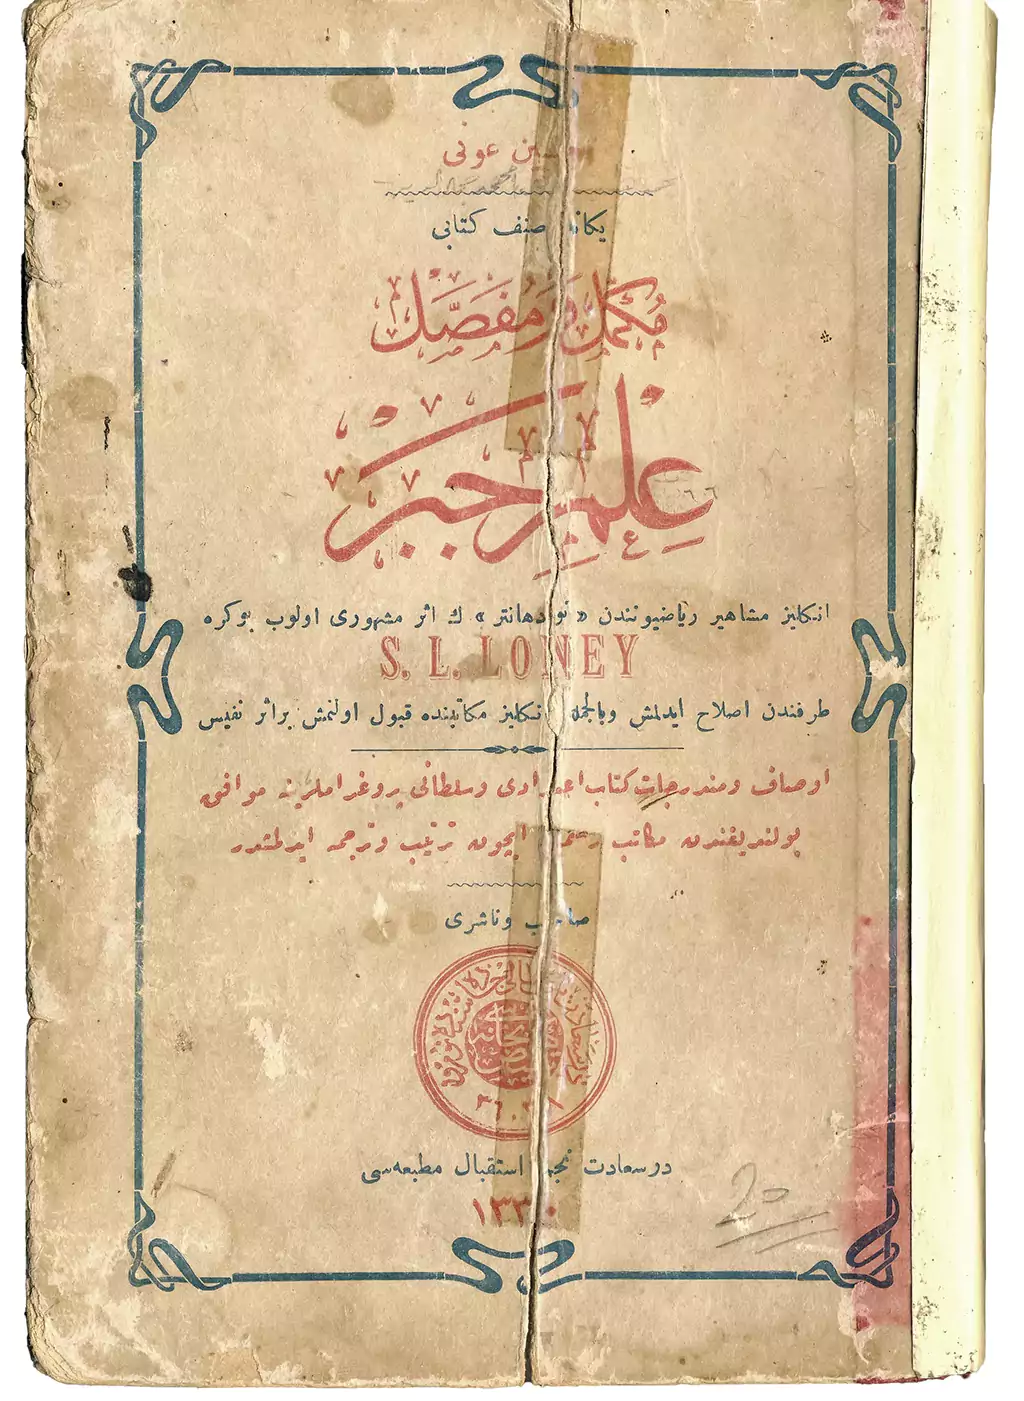 عونى
صنف كتابى
مُكَمَّلْ وَ مُفَصَّلْ
عِلْمِ جَبِرْ
انكليز مشاهير رياضيونندن «تودهانتر» ك اثر مشهورى اولوب بوكره
S. L. LONEY
طرفندن اصلاح ايدلمش وبالجمله انكليز مكاتبنده قبول اولنمش براثر نفيس
اوصاف ومندرجات كتاب اعدادى وسلطانى پروغراملرينه موافق
بولنديغندن مكاتب ايچون ترتيب وترجمه ايدلمشدر
صاحب وناشرى
درسعادت نجم استقبال مطبعه‌سى
١٣٣٠
20